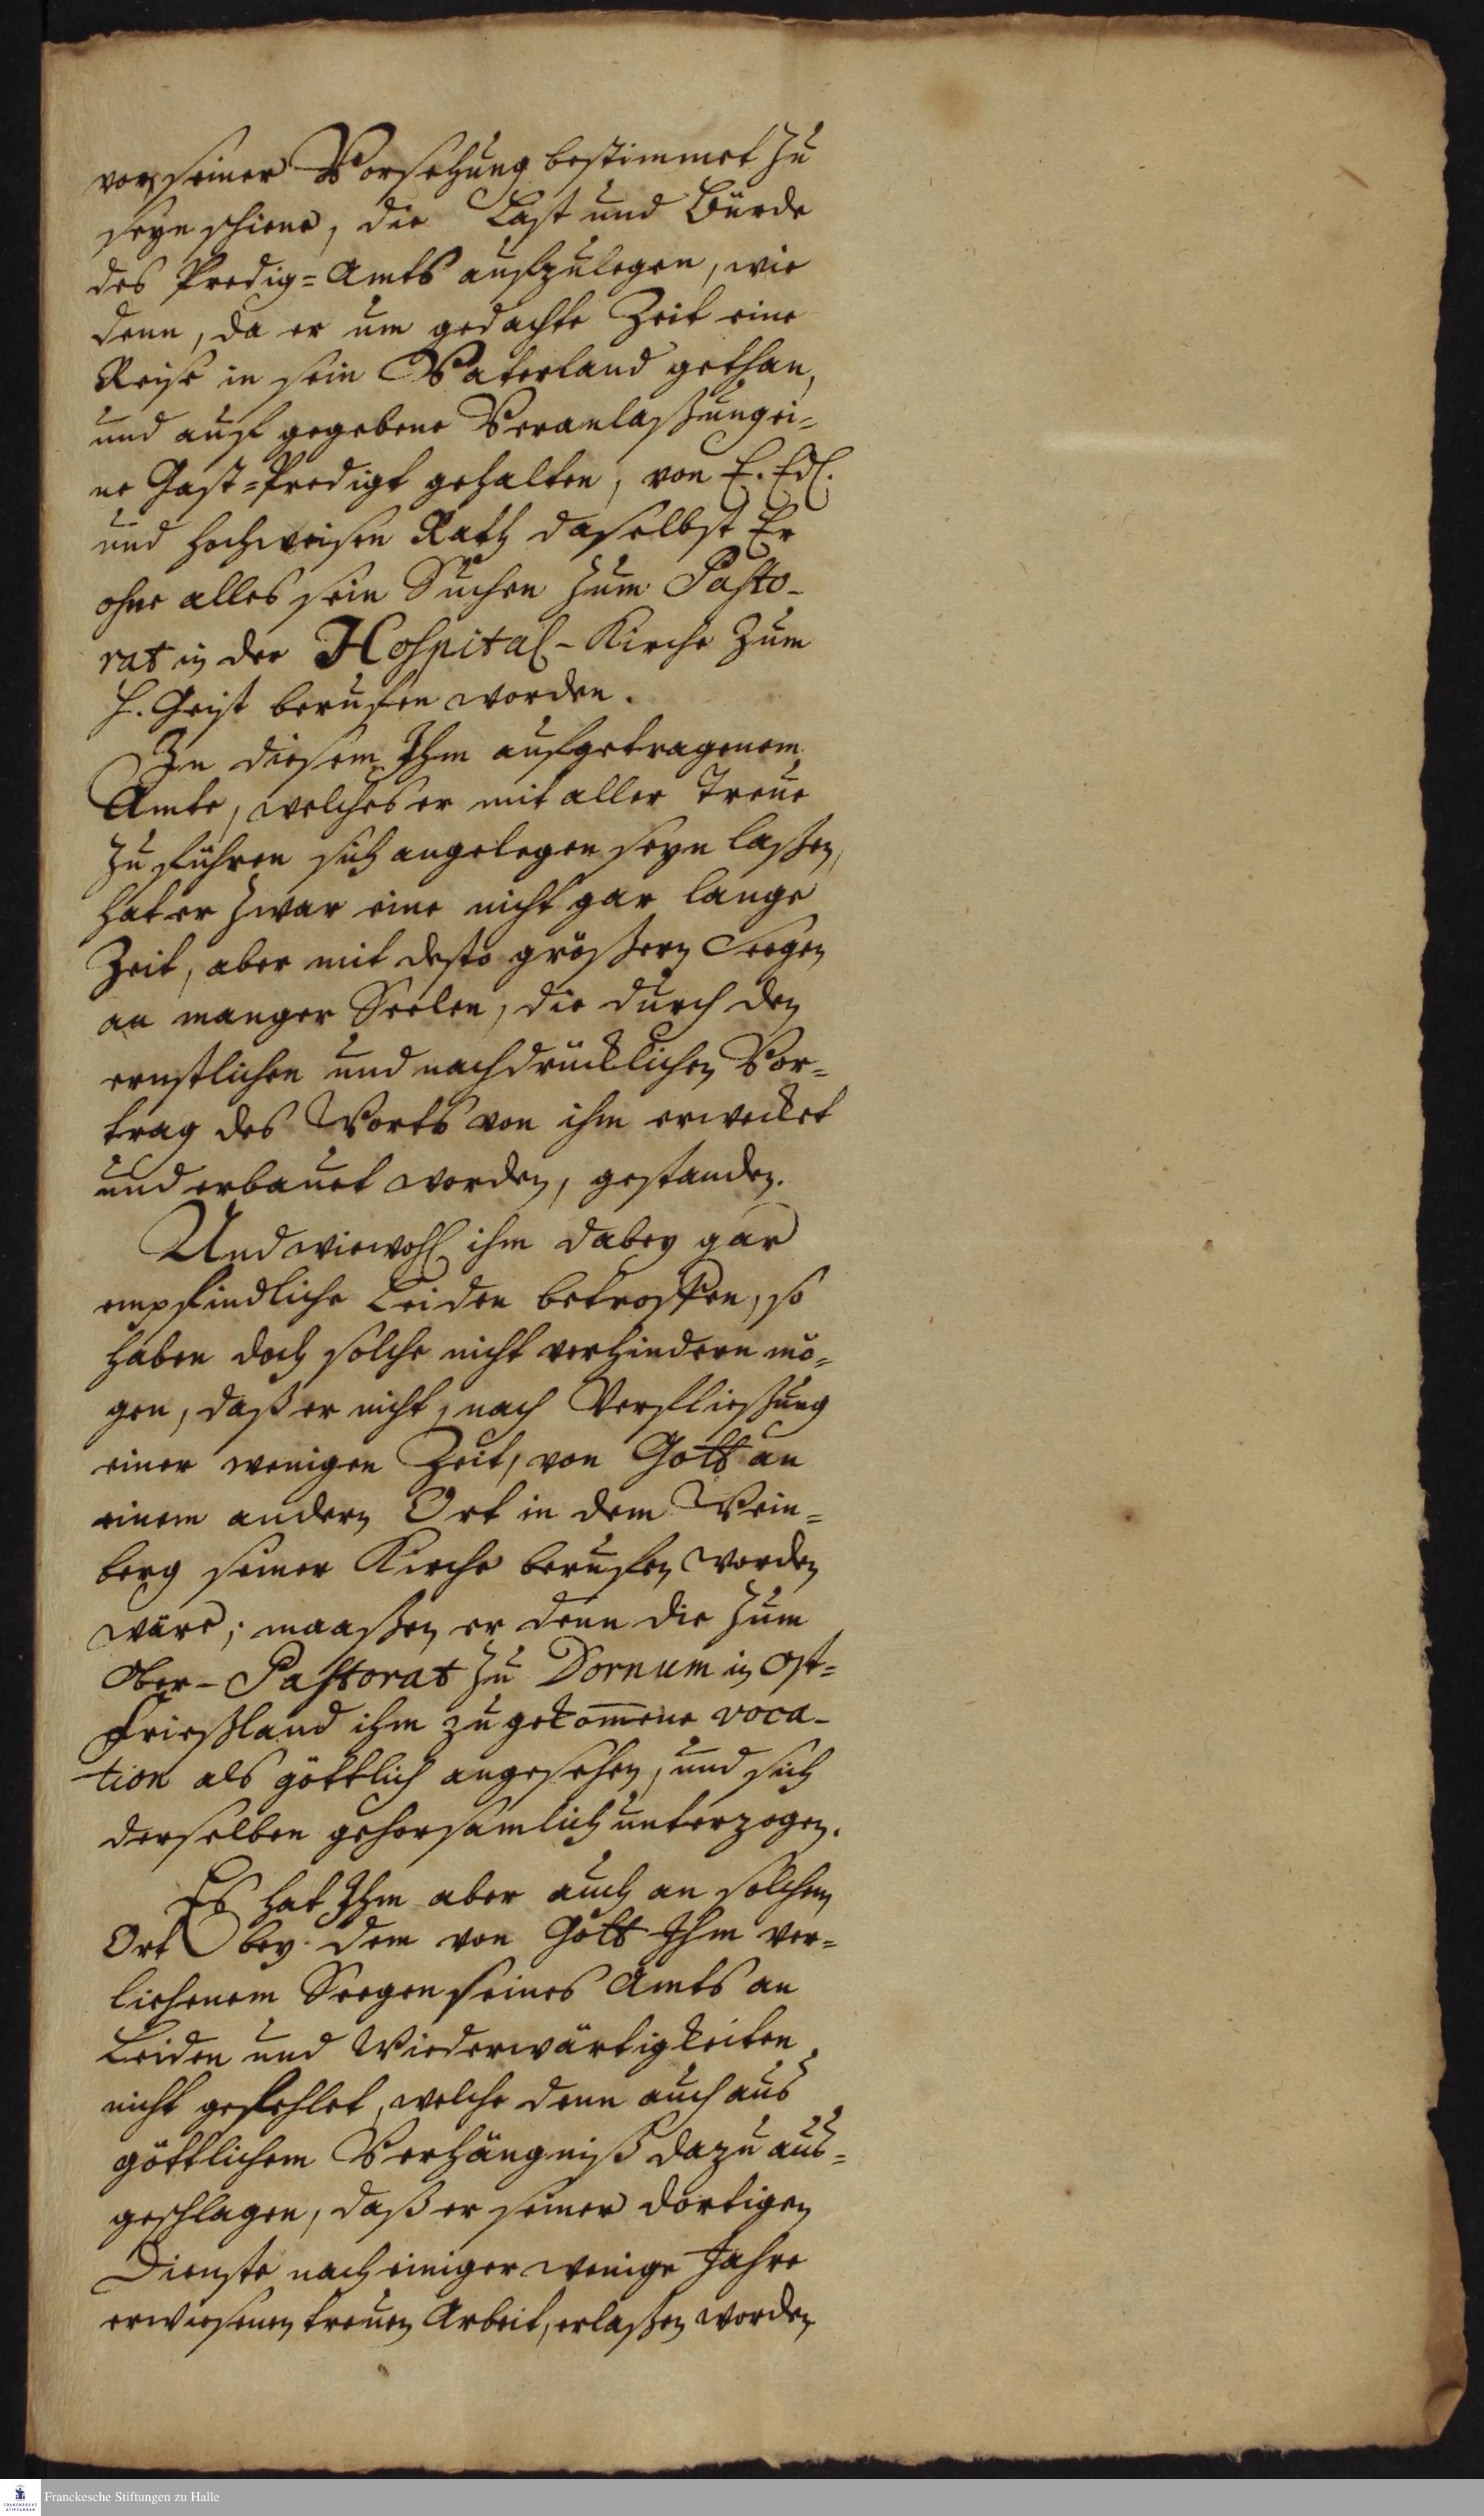 von seiner Vorsehung bestimmet zu
seyn schiene, die Last und Bürde
des Predig=Amts aufzulegen, wie
denn, da er um gedachte Zeit eine
Reise in sein Vaterland gethan,
und auf gegebene Veranlaßung ei=
ne Gast=Predigt gehalten, von E. Edl.
und Hochweisen Rath daselbst Er
ohne alles sein Suchen zum Pasto-
rat in der Hospital-Kirche zum
H. Geist beruffen worden.
In diesem Ihm aufgetragenem
Amte, welches er mit aller Treue
zu führen sich angelegen seyn laßen,
hat er zwar eine nicht gar lange
Zeit, aber mit desto größern Seegen
an manger Seelen, die durch den
ernstlichen und nachdrücklichen Vor=
trag des Worts von ihm erwecket
und erbauet worden, gestanden.
Und wiewohl ihm dabey gar
empfindliche Leiden betroffen, so
haben doch solche nicht verhindern mö=
gen, daß er nicht, nach Verfließung
einer wenigen Zeit, von Gott an
einem andern Ort in dem Wein=
berg seiner Kirche beruffen worden
wäre; maaßen er denn die zum
Ober-Pastorat zu Dornum in Ost=
Frießland ihm zugekom̅ene voca-
tion als göttlich angesehen, und sich
derselben gehorsamlich unterzogen.
Es hat Ihm aber auch an solchem
Ort bey dem von Gott Ihm ver=
liehenem Seegen seines Amts an
Leiden und Wiederwärtigkeiten
nicht gefehlet, welche denn auch aus
göttlichem Verhängniß dazu aus=
geschlagen, daß er seiner dortigen
Dienste nach einiger wenige Jahre
erwiesenen treuen Arbeit, erlaßen worden
Franckesche Stiftungen zu Halle